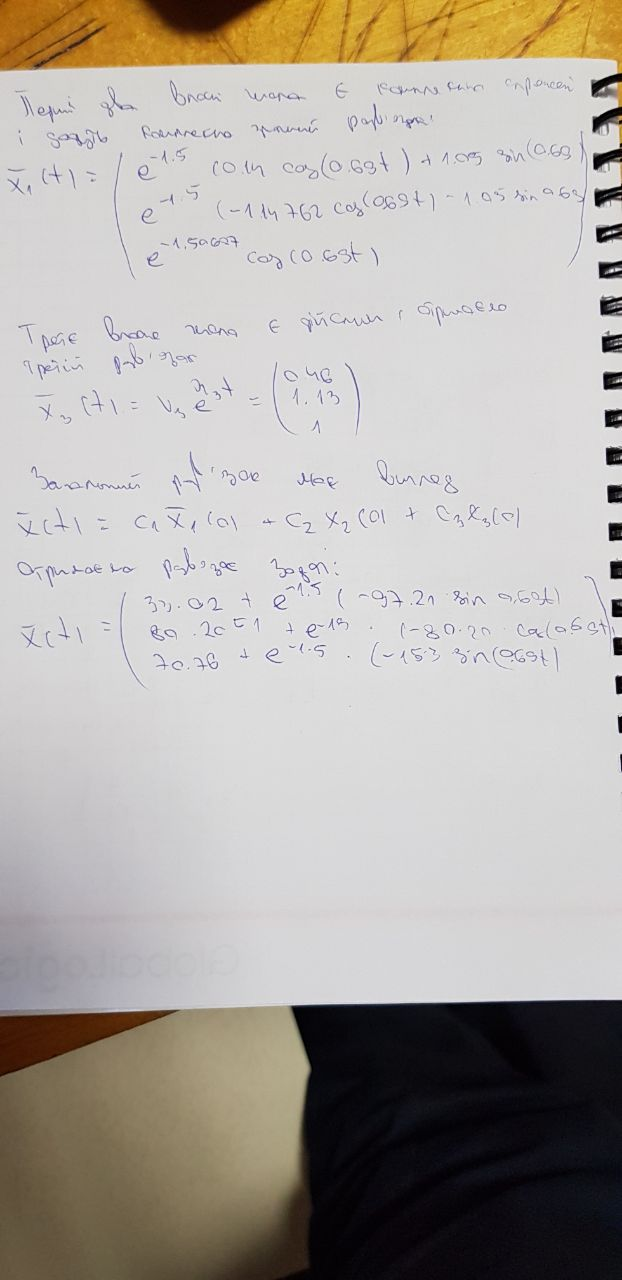 Перші два власні числа є комплексно спряжені
і дають комплексно значний розв'язок:
x̄₁(t) = ( e^-1.5 (0.14 cos(0.69t) + 1.05 sin(0.69)
e^-1.5 (-1.14762 cos(0.69t) - 1.05 sin 0.69
e^-1.59627 cos(0.69t) )
Третє власне число є дійсним і отримаємо
третій розв'язок
x̄₃(t) = v₃ e^λ₃t = ( 0.46
1.13
1 )
Загальний розв'язок має вигляд
x̄(t) = C₁ x̄₁(0) + C₂ x₂(0) + C₃ x₃(0)
Отримаємо розв'язок задачі:
x̄(t) = ( 32.02 + e^-1.5 (-97.21 sin 0.69t)
80.2051 + e^-1.5 · (-80.20 cos(0.69t)
70.76 + e^-1.5 · (-153 sin(0.69t) )
GlobalLogic